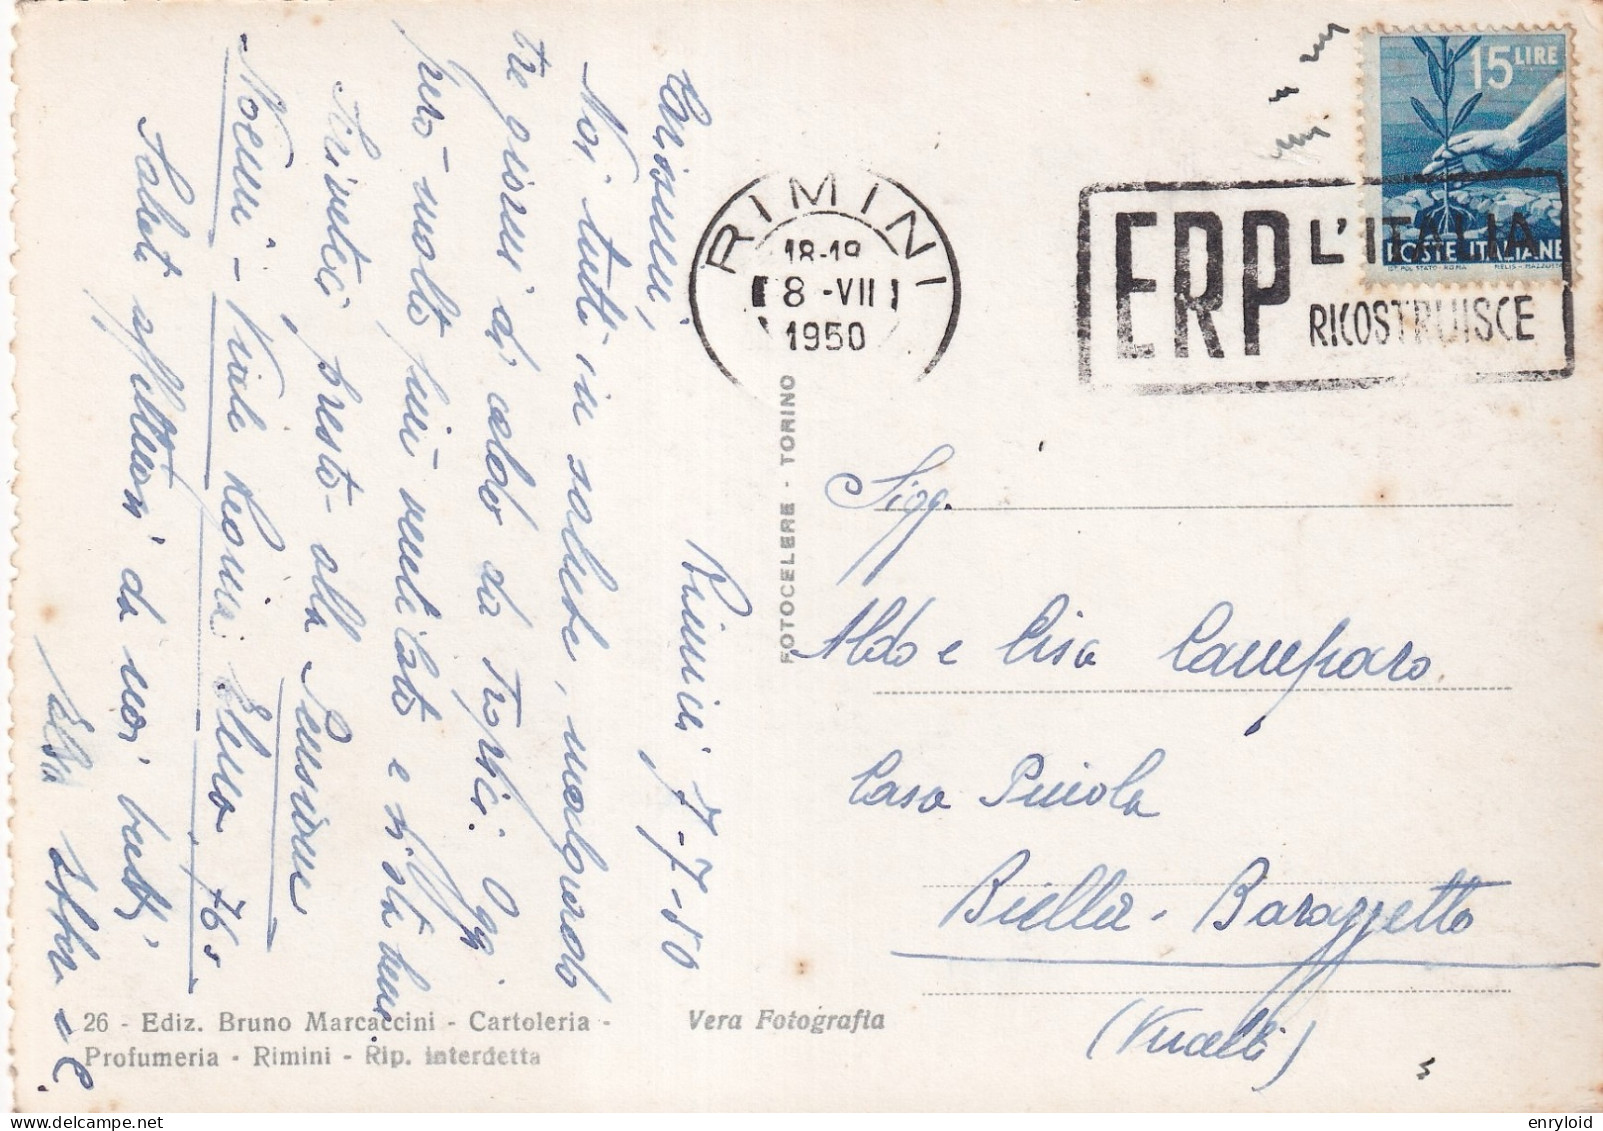 15 LIRE
POSTE ITALIANE
RIMINI
18-19
8 -VII
1950
ERP L'ITALIA
RICOSTRUISCE
Rimini 7-7-50
Carissimi,
Noi tutti in salute, malgrado
tre giorni di caldo da tropici. Oggi
però molto più ventilato e si sta bene
Scriveteci presto - alla Pensione
Noemi - Viale Regina Elena 76
Saluti affettuosi da noi tutti
Elsa
Sigg.
Aldo e Lisa Camparo
Casa
Biella - Barazzetto
(Vercelli)
FOTOCELERE - TORINO
26 - Ediz. Bruno Marcaccini - Cartoleria -
Profumeria - Rimini - Rip. interdetta
Vera Fotografia
delcampe.net
enryloid